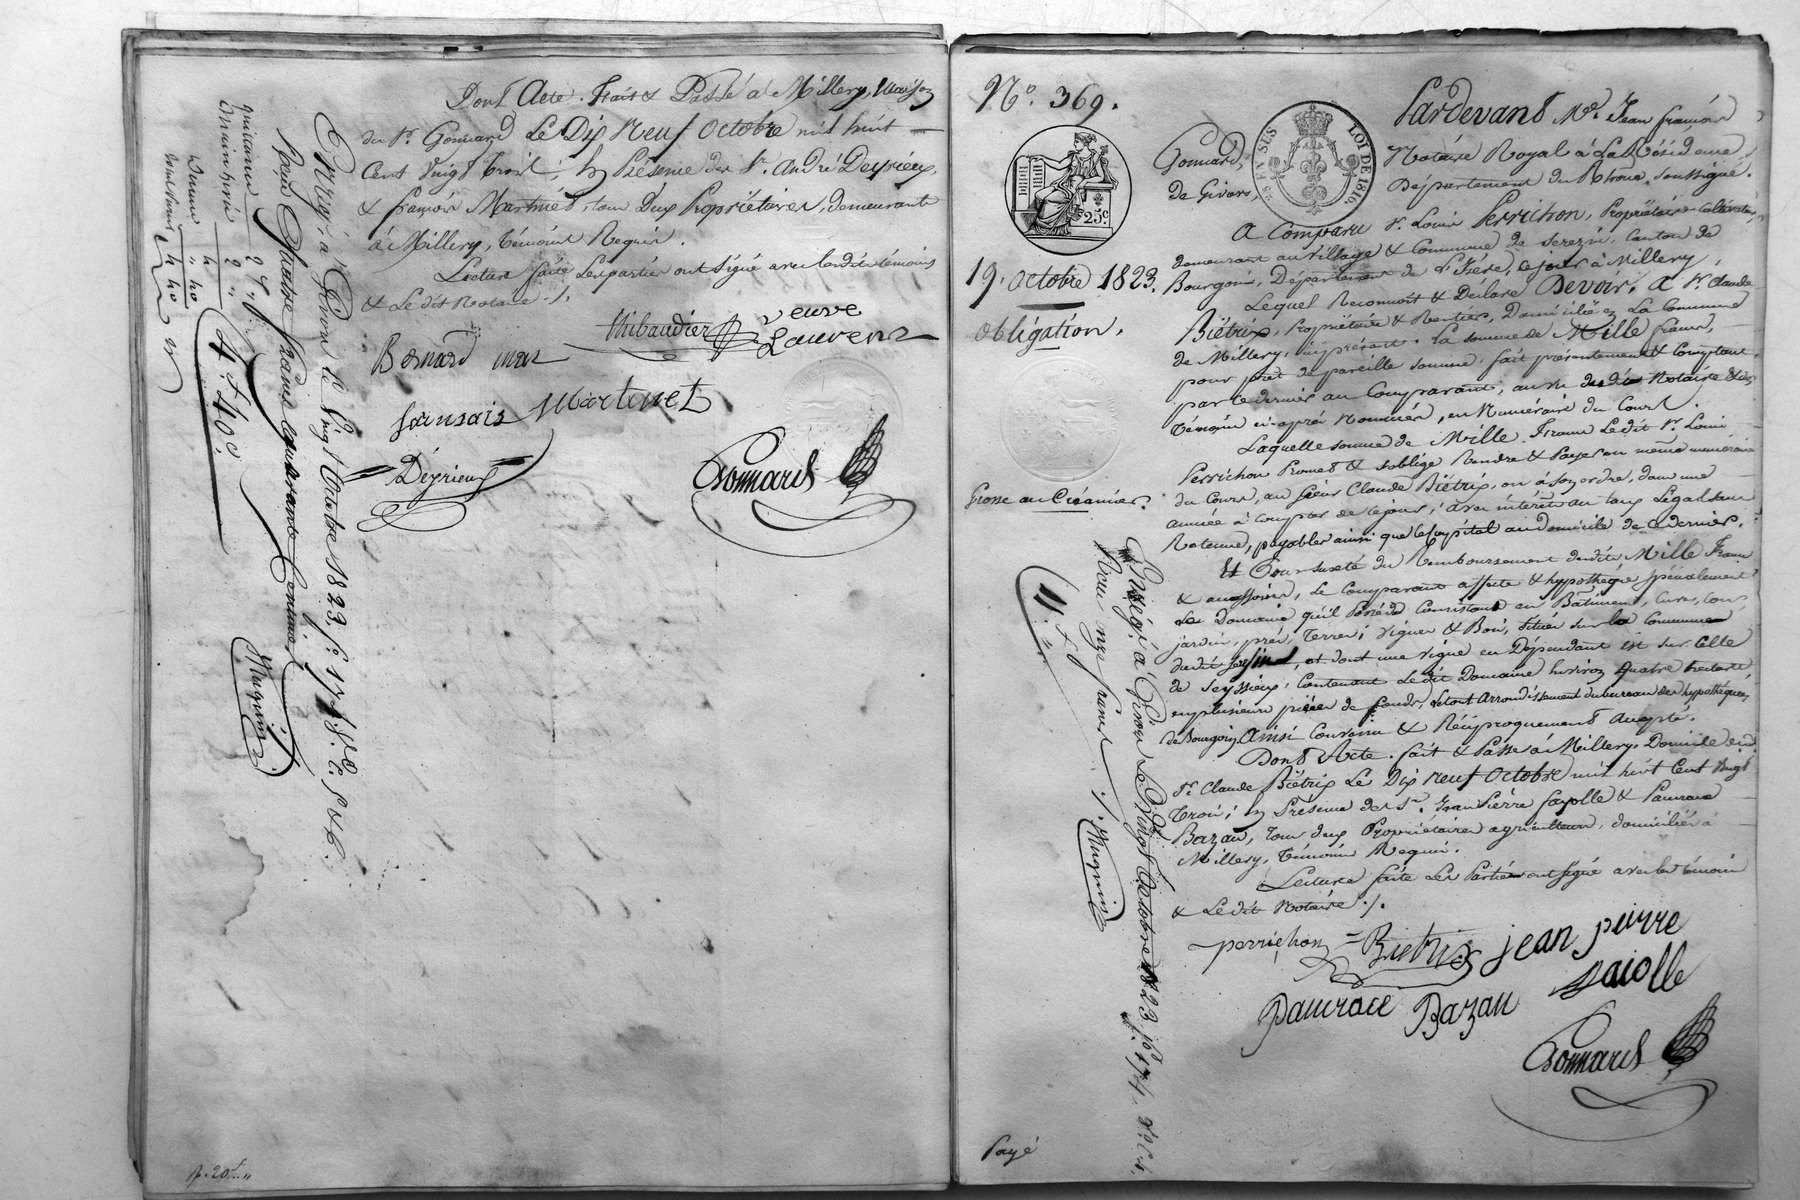 Dont Acte. Fait & Passé à Millery, Maison
du Sr. Gonnard Le Dix Neuf Octobre mil huit
Cent Vingt trois, En Présence des Srs. André Deyrieux,
& françois Martinet, tous Deux Propriétaires, demeurants
à Millery, témoins Requis.
Lecture faite Les parties ont Signé avec lesdits témoins
& Ledit Notaire ./.
Bernard
thibaudier
veuve
Laurens
fransais Martinet
Déyrieux
Gonnard
Enregé. à Givors le Vingt Octobre 1823. fo. 174
Reçu Quatre francs quarante Centimes
Maguin
4f. 40c.
N°. 369.
25c.
LOI DE 1816
19. Octobre 1823.
Obligation.
Grosse au Créancier.
Pardevant Me. Jean françois
Gonnard, Notaire Royal à La Résidence
de Givors, Département du Rhône, soussigné.
A Comparu Sr. Louis Perrichon, Propriétaire Cultivateur,
demeurant au Village & Commune de Serezin, Canton de
Bourgoin, Département de l'Isère, ce jour à Millery,
Lequel Reconnoit & Déclare Devoir, A Sr. Claude
Biétrix, Propriétaire & Rentier, Domicilié en La Commune
de Millery, ici présent. La somme de Mille francs,
pour prêt de pareille somme, fait présentement & Comptant,
par ce dernier au Comparant, au vu dudit Notaire & des
témoins ci-après Nommés, en Numéraire du Cours.
Laquelle somme de Mille Francs Ledit Sr. Louis
Perrichon Promet & s'oblige Rendre & Payer en même numéraire
du Cours, au Sieur Claude Biétrix, ou à son ordre, dans une
année à Compter de ce jour, avec intérêts au taux Légal sans
Retenue, payables ainsi que le Capital au Domicile de ce dernier.
Et Pour sureté du Remboursement desdits Mille Francs
& accessoires, Le Comparant affecte & hypothèque spécialement
Le Domaine qu'il Possède Consistant en Bâtiments, Cures, Cour,
jardin, prés, Terres, Vignes & Bois, Situés sur la Commune
dudit Serezin, et dont une Vigne en Dépendant est sur Celle
de Seyssieux, Contenant Ledit Domaine Environ quatre hectares
en plusieurs pièces de fonds, Le tout Arrondissement du bureau des hypothèques
de Bourgoin. Ainsi Convenu & Réciproquement Accepté.
Dont Acte. fait & Passé à Millery, Domicile dud.
Sr. Claude Biétrix Le Dix neuf Octobre mil huit Cent Vingt
trois, En Présence des Srs. Jean Pierre fayolle & Pancrace
Bazan, tous deux Propriétaires agriculteurs, domiciliés à
Millery, témoins Requis.
Lecture faite Les Parties ont Signé avec les témoins
& Ledit Notaire ./.
perrichon Biétrix jean pierre
faiolle
Pancrace Bazan
Gonnard
Enregé. à Givors Le Vingt Octobre 1823 fo. 174.
Reçu onze francs
Maguin
Payé